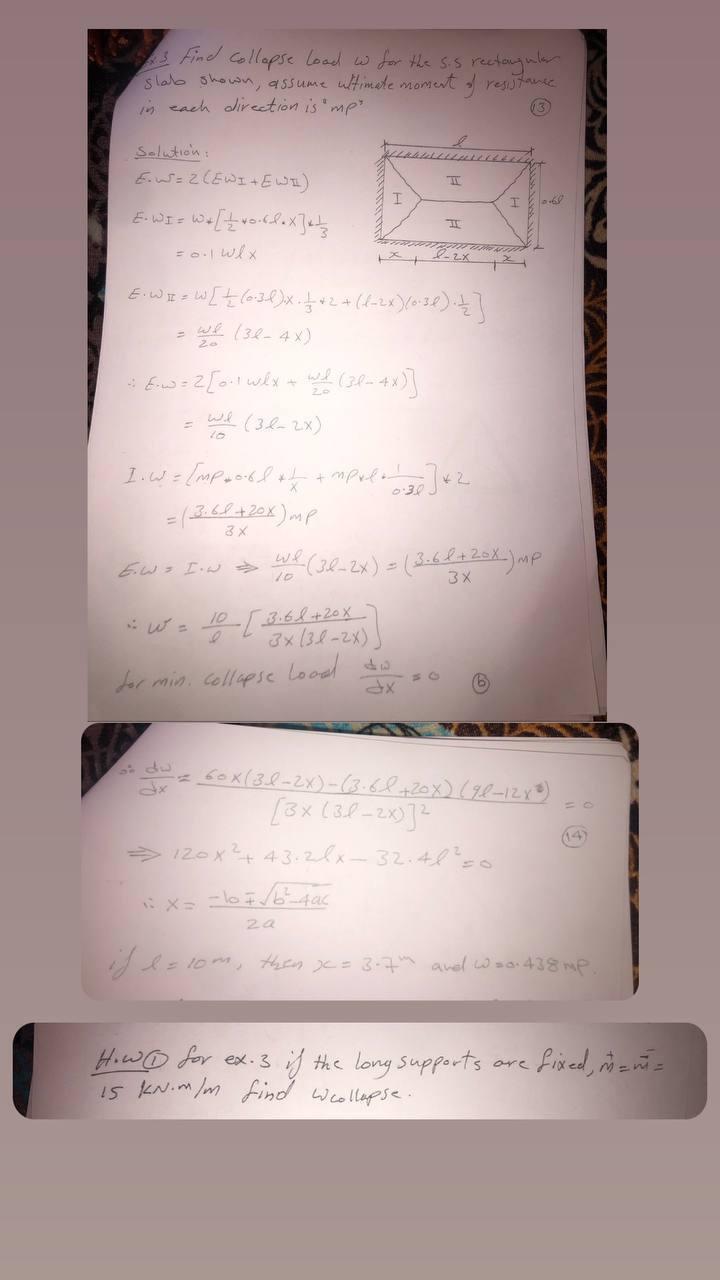 ex.3 Find collapse load w for the s.s rectangular
slab shown, assume ultimate moment of resistance
in each direction is "mp"
13
Solution:
E.W = 2(EWI + EWII)
E.WI = W*[1/2*0.6l*x]*1/3
= 0.1 Wlx
l
I
II
II
I
0.6l
x
l-2x
x
E.WII = W[1/2(0.3l)x.1/3*2 + (l-2x)(0.3l).1/2]
= wl/20 (3l-4x)
∴ E.W = 2[0.1wlx + wl/20 (3l-4x)]
= wl/10 (3l-2x)
I.W = [mp*0.6l*1/x + mp*l*1/0.3l]*2
= (3.6l+20x/3x)mp
E.W = I.W ⇒ wl/10(3l-2x) = (3.6l+20x/3x)mp
∴ W = 10/l [3.6l+20x/3x(3l-2x)]
for min. collapse load dw/dx = 0
∴ dw/dx = 60x(3l-2x)-(3.6l+20x)(9l-12x)/[3x(3l-2x)]² = 0
14
⇒ 120x² + 43.2lx - 32.4l² = 0
∴ x = -b∓√b²-4ac/2a
if l = 10m, then x = 3.7m and w=0.438mp.
H.W① for ex.3 if the long supports are fixed, m⃗ = m̄ =
15 KN.m/m find wcollapse.